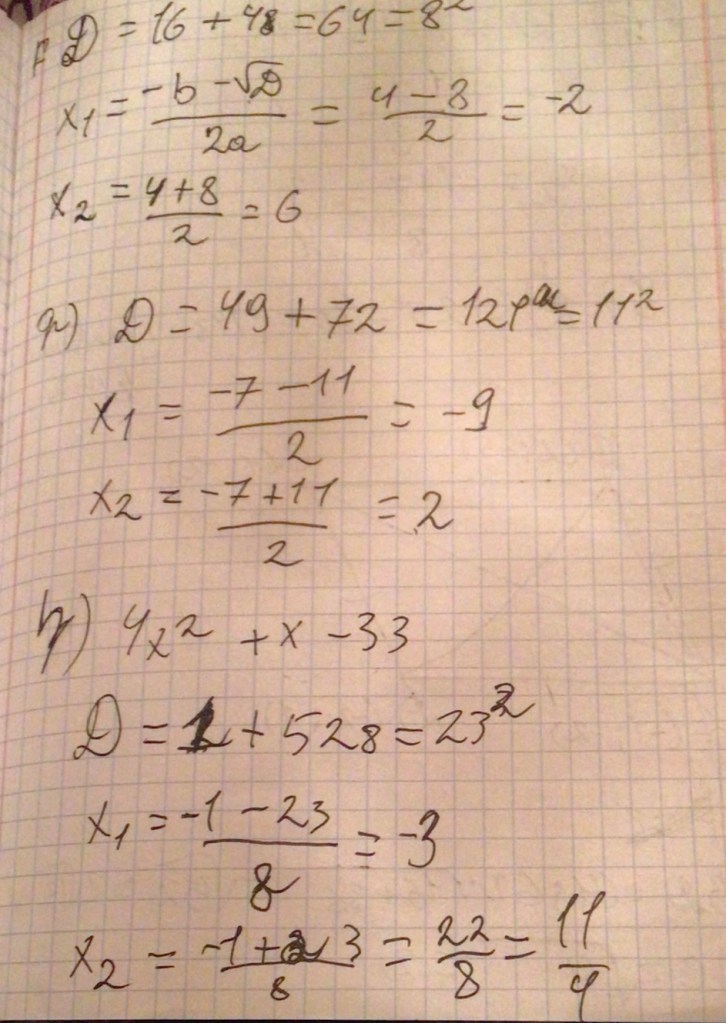 D = 16 + 48 = 64 = 8²
x₁ = (-b - √D)/2a = (4 - 8)/2 = -2
x₂ = (4 + 8)/2 = 6
D = 49 + 72 = 121 = 11²
x₁ = (-7 - 11)/2 = -9
x₂ = (-7 + 11)/2 = 2
4x² + x - 33
D = 1 + 528 = 23²
x₁ = (-1 - 23)/8 = -3
x₂ = (-1 + 23)/8 = 22/8 = 11/4